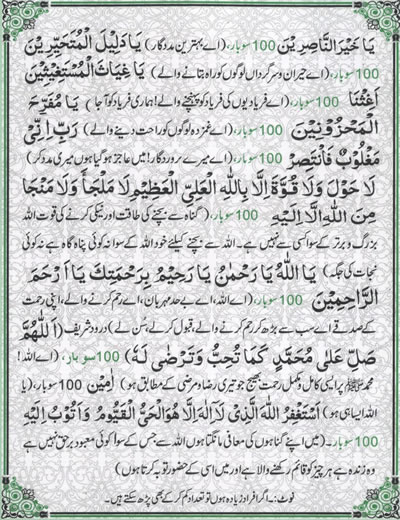 يَا خَيْرَ النَّاصِرِيْنَ 100 سو بار، (اے بہترین مددگار) يَا دَلِيْلَ الْمُتَحَيِّرِيْنَ
100 سو بار، (اے حیران و سرگرداں لوگوں کو راہ بتانے والے) يَا غِيَاثَ الْمُسْتَغِيْثِيْنَ
اَغِثْنَا 100 سو بار، (اے فریادیوں کی فریاد کو پہنچنے والے! ہماری فریاد کو آ جا) يَا مُفَرِّحَ
الْمَحْزُوْنِيْنَ 100 سو بار، (اے غمزدہ لوگوں کو راحت دینے والے) رَبِّ اِنِّيْ
مَغْلُوْبٌ فَانْتَصِرْ 100 سو بار، (اے میرے پروردگار! میں عاجز ہو گیا ہوں میری مدد کر)
لَا حَوْلَ وَلَا قُوَّةَ اِلَّا بِاللهِ الْعَلِيِّ الْعَظِيْمِ لَا مَلْجَأَ وَلَا مَنْجَا
مِنَ اللهِ اِلَّا اِلَيْهِ 100 سو بار، (گناہ سے بچنے کی طاقت اور نیکی کرنے کی قوت اللہ
بزرگ و برتر کے سوا کسی سے نہیں ہے۔ اللہ سے بچنے کیلئے خود اللہ کے سوا نہ کوئی پناہ گاہ ہے نہ کوئی
نجات کی جگہ) يَا اَللهُ يَا رَحْمٰنُ يَا رَحِيْمُ بِرَحْمَتِكَ يَا اَرْحَمَ
الرَّاحِمِيْنَ 100 سو بار، (اے اللہ، اے بے حد مہربان، اے رحم کرنے والے، اپنی رحمت
کے صدقے اے سب سے بڑھ کر رحم کرنے والے، قبول کر لے، سُن لے) درود شریف (اَللّٰهُمَّ
صَلِّ عَلٰى مُحَمَّدٍ كَمَا تُحِبُّ وَتَرْضٰى لَهٗ) 100 سو بار، (اے اللہ!
محمد ﷺ پر ایسی کامل و مکمل رحمت بھیج جو تیری رضا و مرضی کے مطابق ہو) اٰمِيْن 100 سو بار، (یا
اللہ ایسا ہی ہو) اَسْتَغْفِرُ اللهَ الَّذِيْ لَا اِلٰهَ اِلَّا هُوَ الْحَيُّ الْقَيُّوْمُ وَ اَتُوْبُ اِلَيْهِ
100 سو بار۔ (میں اپنے گناہوں کی معافی مانگتا ہوں اللہ سے جس کے سوا کوئی معبود برحق نہیں ہے
وہ زندہ ہے ہر چیز کو قائم رکھنے والا ہے اور میں اسی کے حضور توبہ کرتا ہوں)
نوٹ:۔ اگر افراد زیادہ ہوں تو تعداد کم کر کے بھی پڑھ سکتے ہیں۔